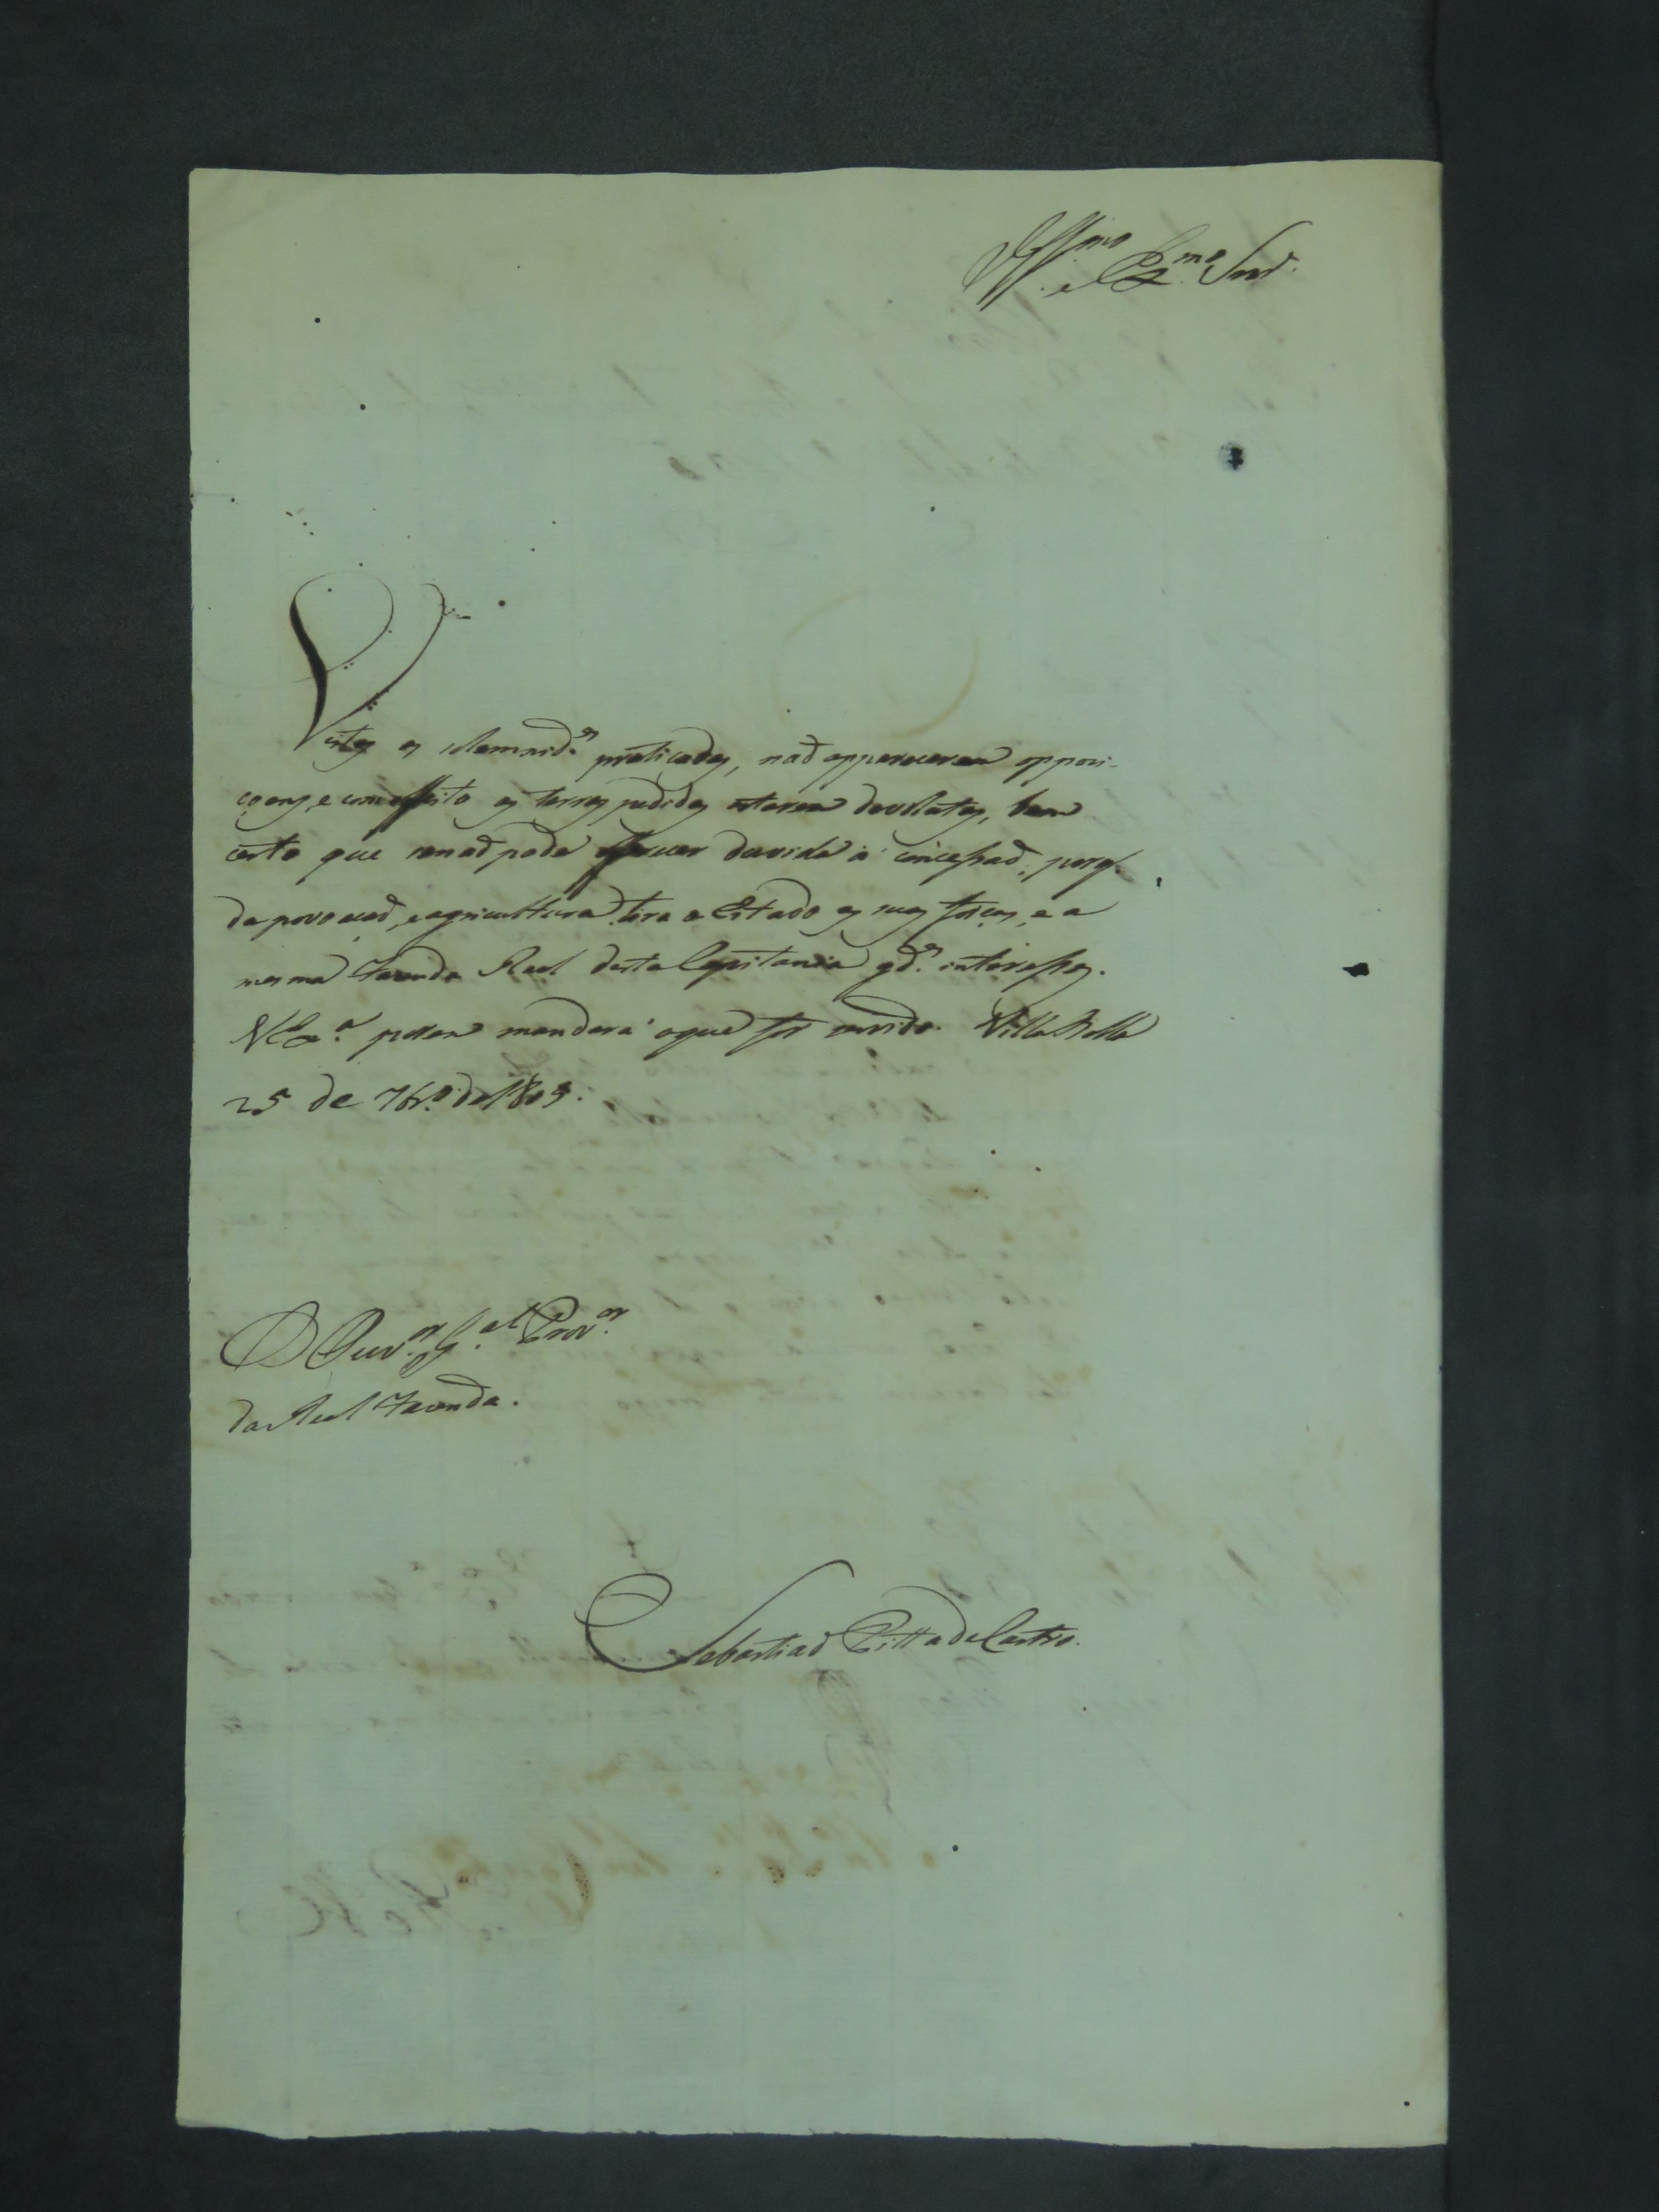 Illmo. e Exmo. Snr.
Vistas as solemnides. praticadas, naõ appareceraõ opposi-
çoens, e com effeito as terras pedidas estarem devolutas, bem
certo que se naõ pode offerecer duvida á concessaõ, porq.
da povoacaõ, e agricultura tira o Estado as suas forças, e a
mesma Fazenda Real desta Capitania gdes. interesses.
V Exa. porem mandará o que for servido. Villa Bella
25 de 7bro. de 1805.
O Ouvor. Gal. Provor.
da Real Fazenda.
Sebastiaõ Pitta de Castro.